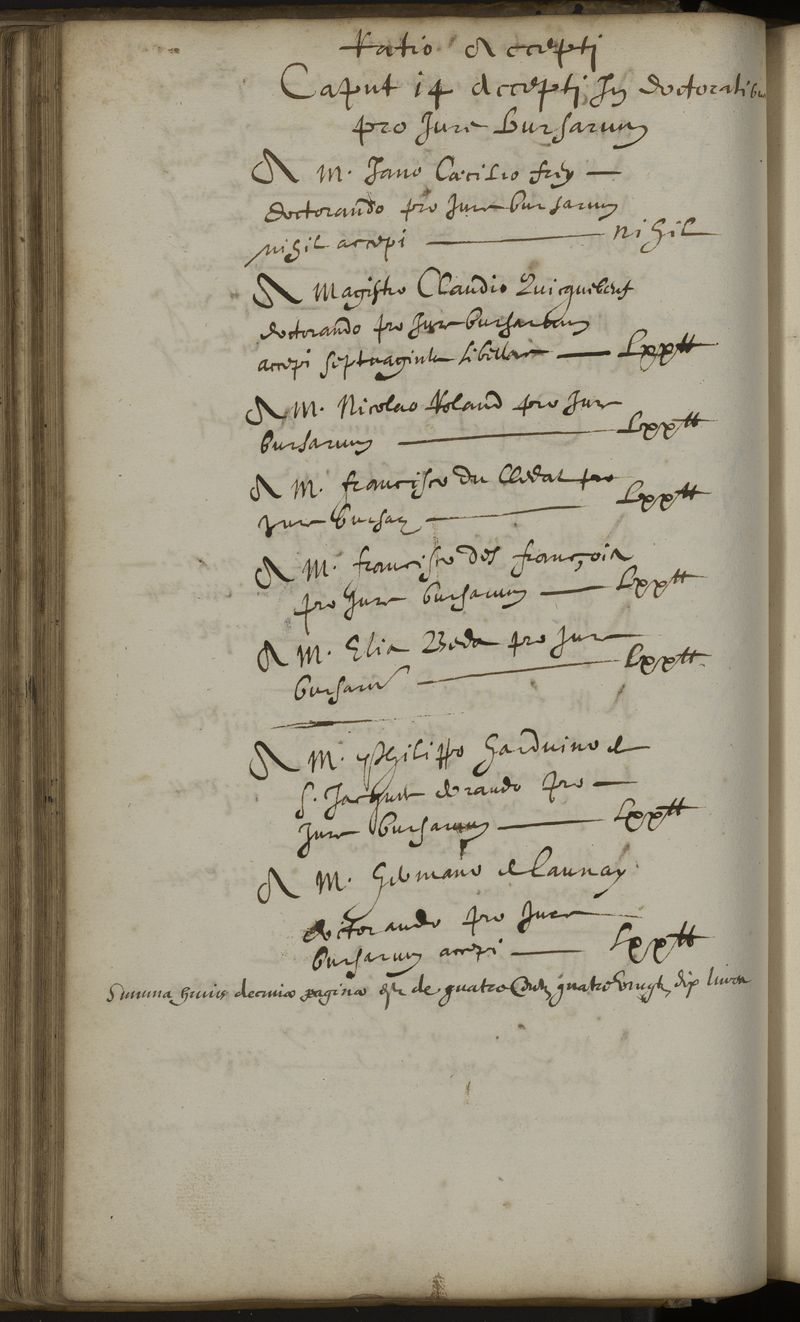 Ratio Accepti
Caput 14 Accepti In doctoratibus
pro Jure bursarum
A M. Jano Cæcilio frey —
doctorando pro Jure bursarum
nihil accepi — nihil
A Magistro Claudio Quicquebeuf
doctorando pro Jure bursarum
accepi septuaginta libellas — Lxxtt
A M. Nicolao Roland pro Jure
bursarum — Lxxtt
A M. francisco du Cledat pro
Jure bursar — Lxxtt
A M. francisco des françois
pro Jure bursarum — Lxxtt
A M. Elia Beda pro Jure
bursarum — Lxxtt
A M. Philippo harduino de
S. Jacques dorando pro —
Jure bursarum — Lxxtt
A M. Germano de Launay
doctorando pro Jure
bursarum accepi — Lxxtt
Summa huius decimæ paginæ est de quatre Cents quatre vingts dix livres